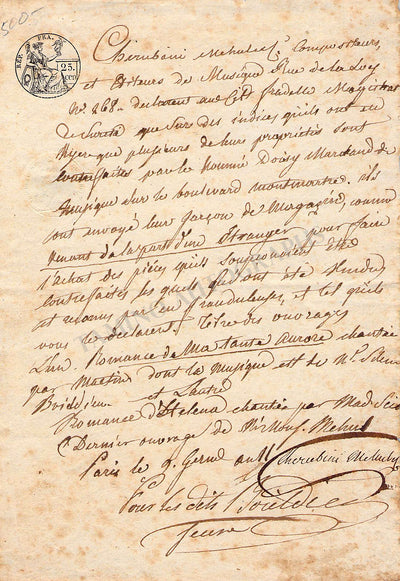 5005-
REP. FRA.
25.
CEN
Cherubini Mehul et Cie. Compositeurs,
et Editeurs de Musique Rue de la Loy
No. 268. declarent au Citn. fradelle Magistrat
de Sureté que sur des indices qu'ils ont eu
hyer que plusieurs de leurs propriétés sont
contrefaites par le nommé Doisy Marchand de
musique sur le boulevard montmartre. ils
ont envoyé leur garçon de Magazin, comme
venant de la part d'un Etranger, pour faire
l'achat des pièces qu'ils soupçonnoient être
contrefaites les quels qui ont été vendus
et reconnus par eux frauduleuses, et tel qu'ils
vous le declarent. Titre des ouvrages
L'un. Romance de Ma tante Aurore chantée
par Martin dont la musique est de Mr.
Boieldieu et L'autre
Romance d'Helena chantée par Mad. Scio
Dernier ouvrage de Mehul
Paris le 9. Germl. an 11
Cherubini Mehul
Pour les dits Boieldieu
jeune